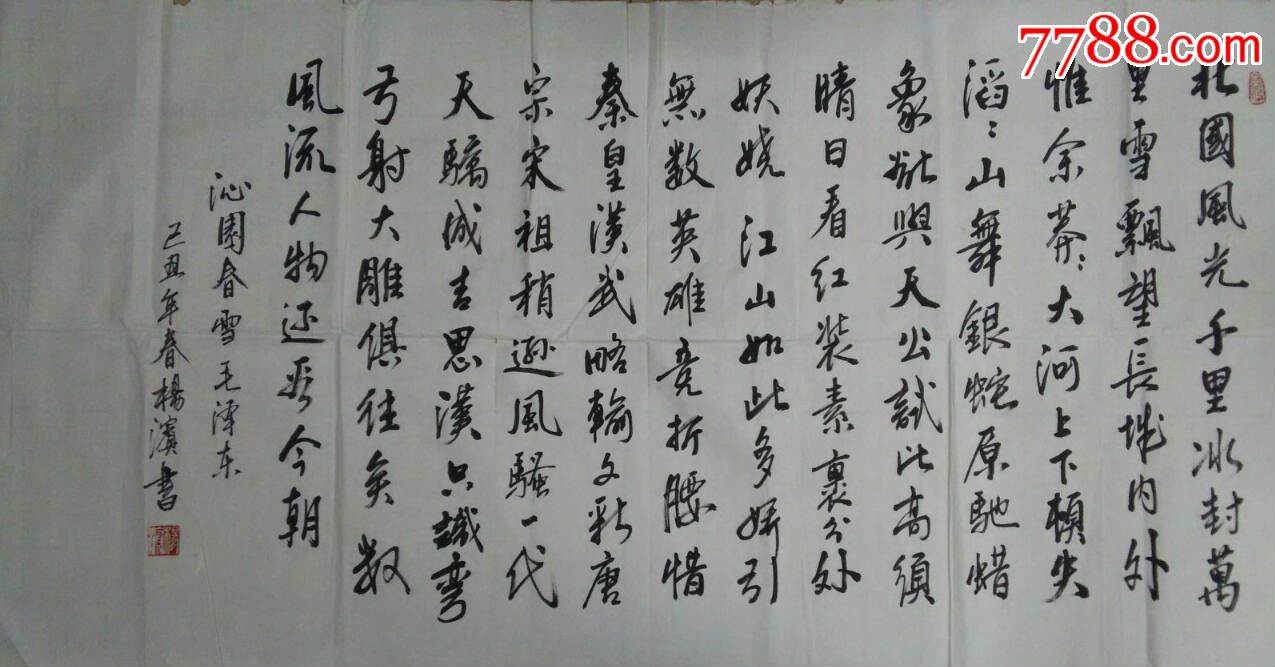 7788.com
北國風光千里冰封萬
里雪飄望長城内外
惟余莽〻大河上下頓失
滔〻山舞銀蛇原馳蜡
象欲與天公試比高須
晴日看红装素裹分外
妖娆江山如此多娇引
無数英雄竞折腰惜
秦皇漢武略輸文彩唐
宗宋祖稍遜風騷一代
天驕成吉思漢只識彎
弓射大雕俱往矣数
風流人物还看今朝
沁園春雪毛泽东
己丑年春楊濱書